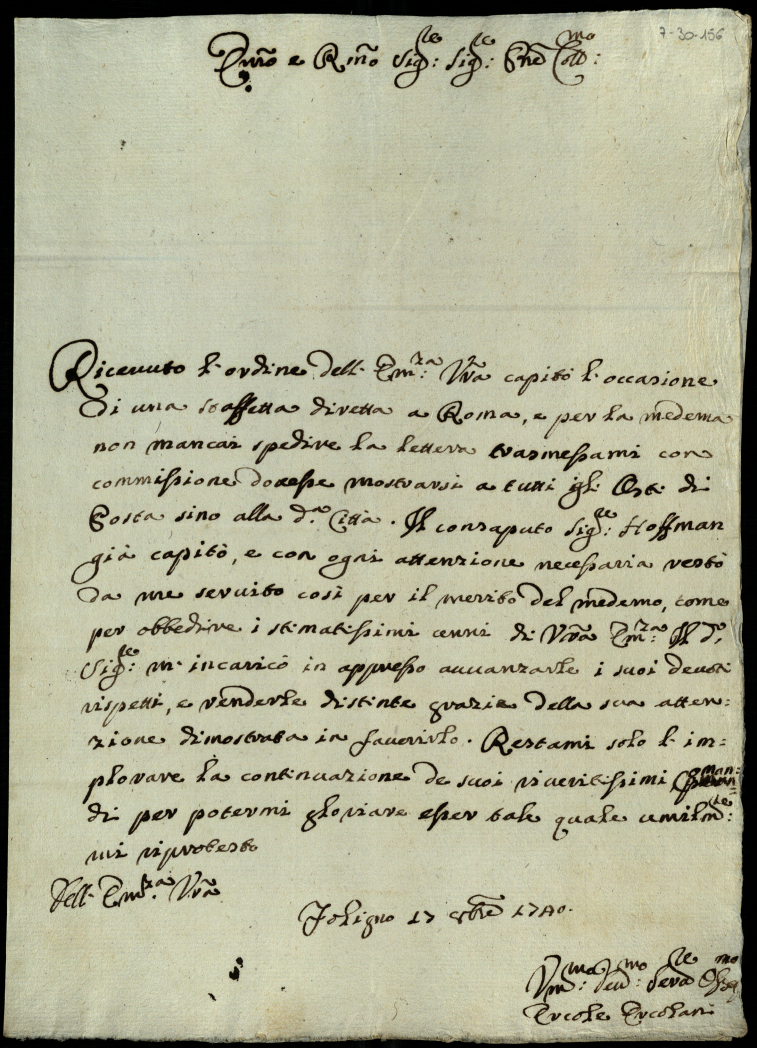 7-30-156
Em̃o e Rm̃o Sig:re Sig:re Pñe Coll:mo
Ricevuto l'ordine dell' Em:za Vr̃a capitò l'occasione
di una staffetta diretta a Roma, e per la medema
non mancai spedire la lettera trasmessami con
commissione dovesse mostrarsi a tutti gl' Osti di
Posta sino alla d.a Città. Il consaputo Sig:re Hoffman
già capitò, e con ogni attenzione necessaria restò
da me servito così per il merito del medemo, come
per obbedire i stimatissimi cenni di Vr̃a Em:za Il d.o
Sig:re m' incaricò in appresso avvanzarle i suoi devoti
rispetti, e renderle distinte grazie della sua atten=
zione dimostrata in favorirlo. Restami solo l' im=
plorare la continuazione de suoi riveritissimi Coman=
di per potermi gloriare esser tale quale umilm:te
mi riprotesto
Dell' Em:za Vr̃a
Foligno 17 8bre 1740.
Vm:mo Dev:mo Serv:re Obb:mo
Ercole Ercolani